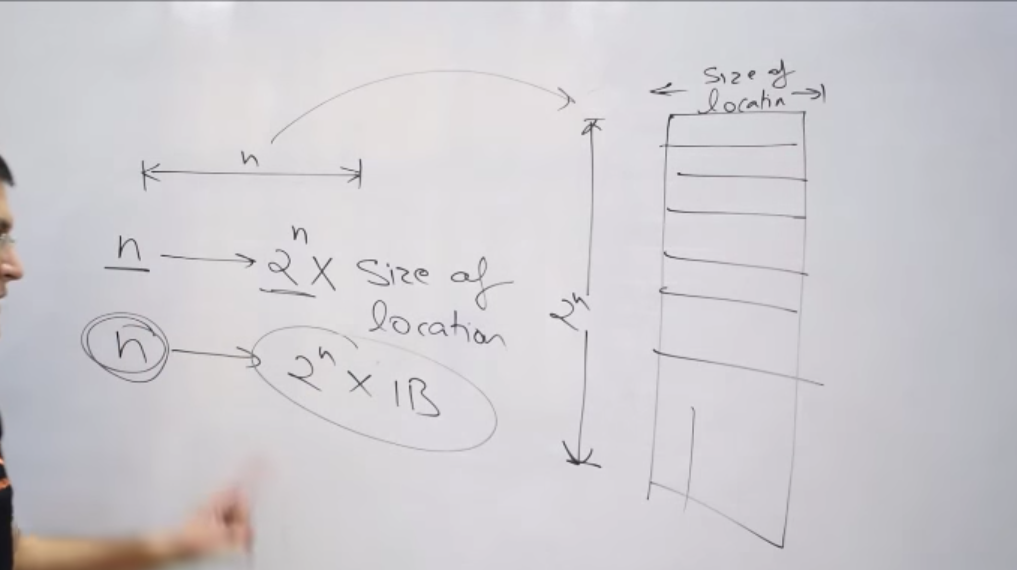 n
n → 2ⁿ X Size of
location
n → 2ⁿ X 1B
2ⁿ
Size of
locatin